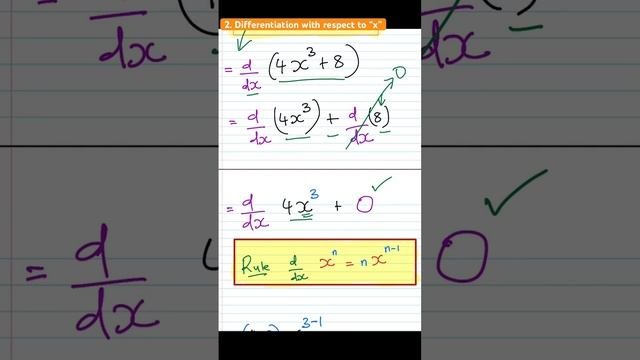 2. Differentiation with respect to "x"
= d/dx (4x³ + 8)
= d/dx (4x³) + d/dx (8) 0
= d/dx 4x³ + 0 ✓
Rule d/dx xⁿ = n xⁿ⁻¹
3-1